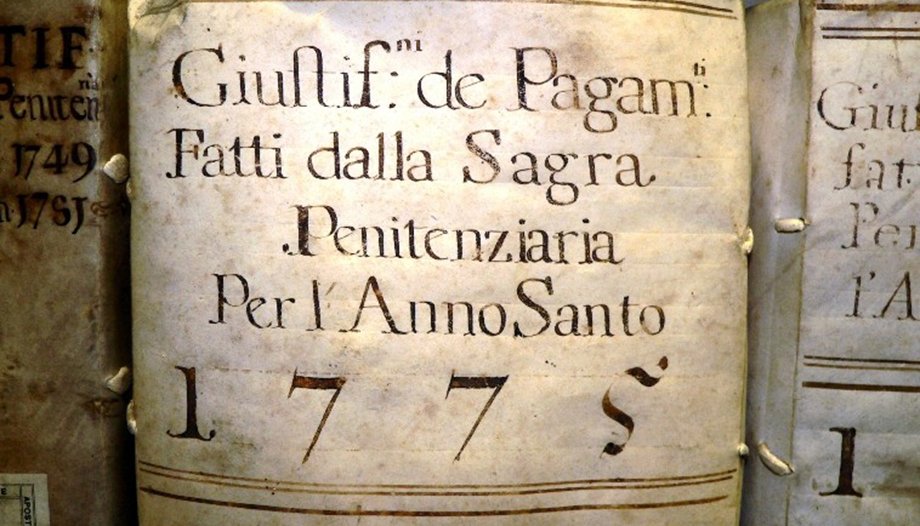 TIF
nia
Peniten
1749
1751
Giuſtif:ni de Pagam:ti
Fatti dalla Sagra
Penitenziaria
Per l' Anno Santo
1775
Giu
fat
Pe
l'A
1